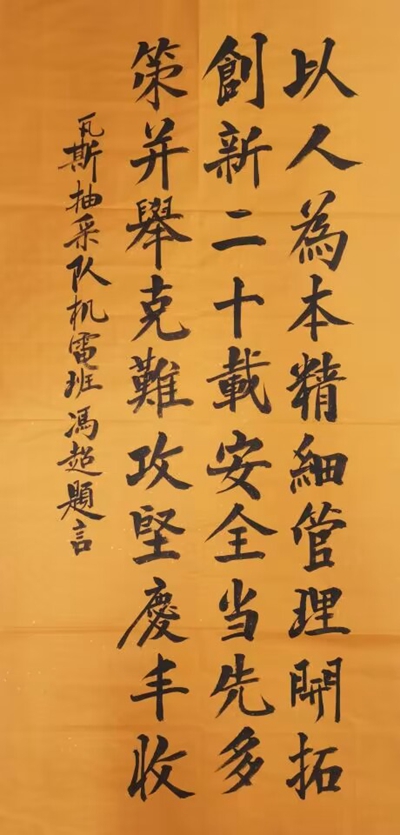 以人為本精細管理開拓
創新二十載安全当先多
策并舉克難攻堅慶丰收
瓦斯抽采队机電班馮超題言